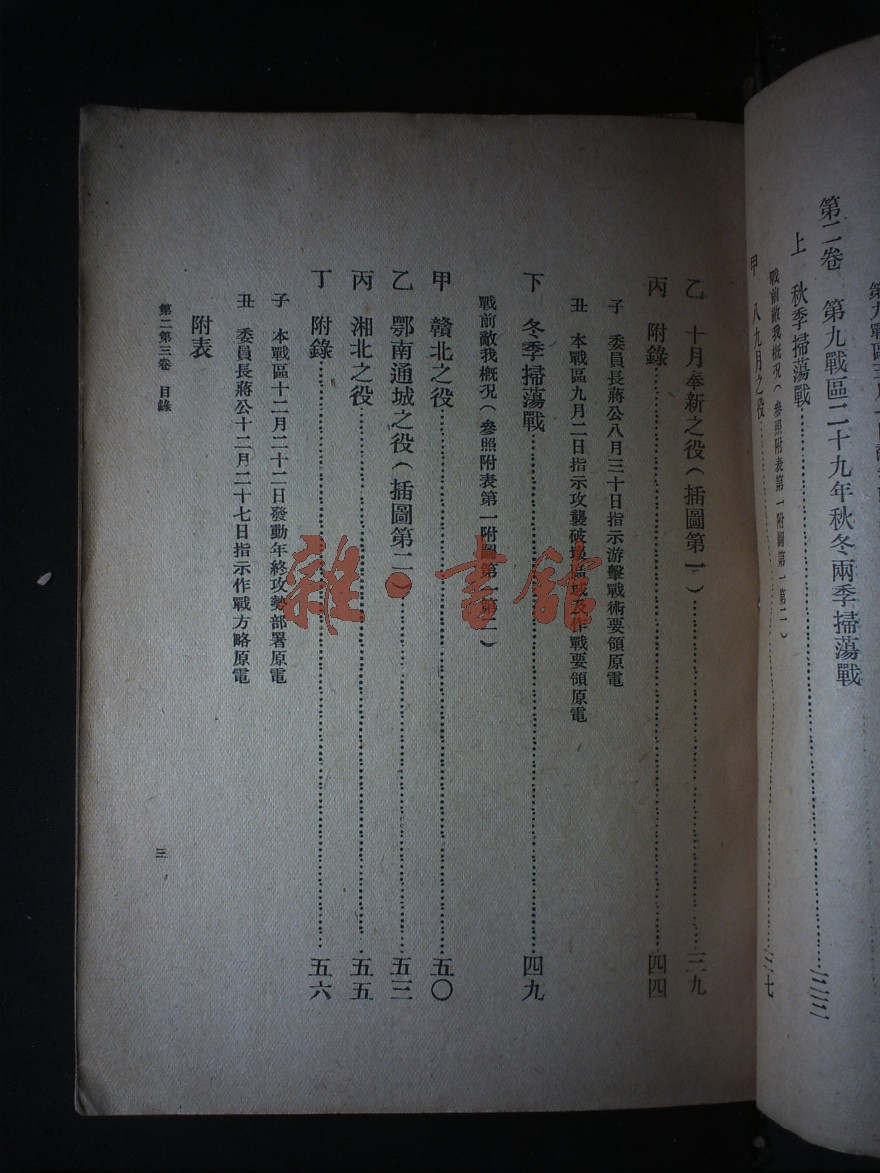 第二卷 第九戰區二十九年秋冬兩季掃蕩戰
上 秋季掃蕩戰……三三
戰前敵我概況(參照附表第一附圖第一第二)
甲 八九月之役……三七
乙 十月奉新之役(插圖第一)……三九
丙 附錄……四四
子 委員長蔣公八月三十日指示游擊戰術要領原電
丑 本戰區九月二日指示攻襲破壞區域及作戰要領原電
下 冬季掃蕩戰……四九
戰前敵我概況(參照附表第一附圖第一第二)
甲 贛北之役……五〇
乙 鄂南通城之役(插圖第二)……五三
丙 湘北之役……五五
丁 附錄……五六
子 本戰區十二月二十二日發動年終攻勢部署原電
丑 委員長蔣公十二月二十七日指示作戰方略原電
附表
第二第三卷 目錄
三
雜·書館